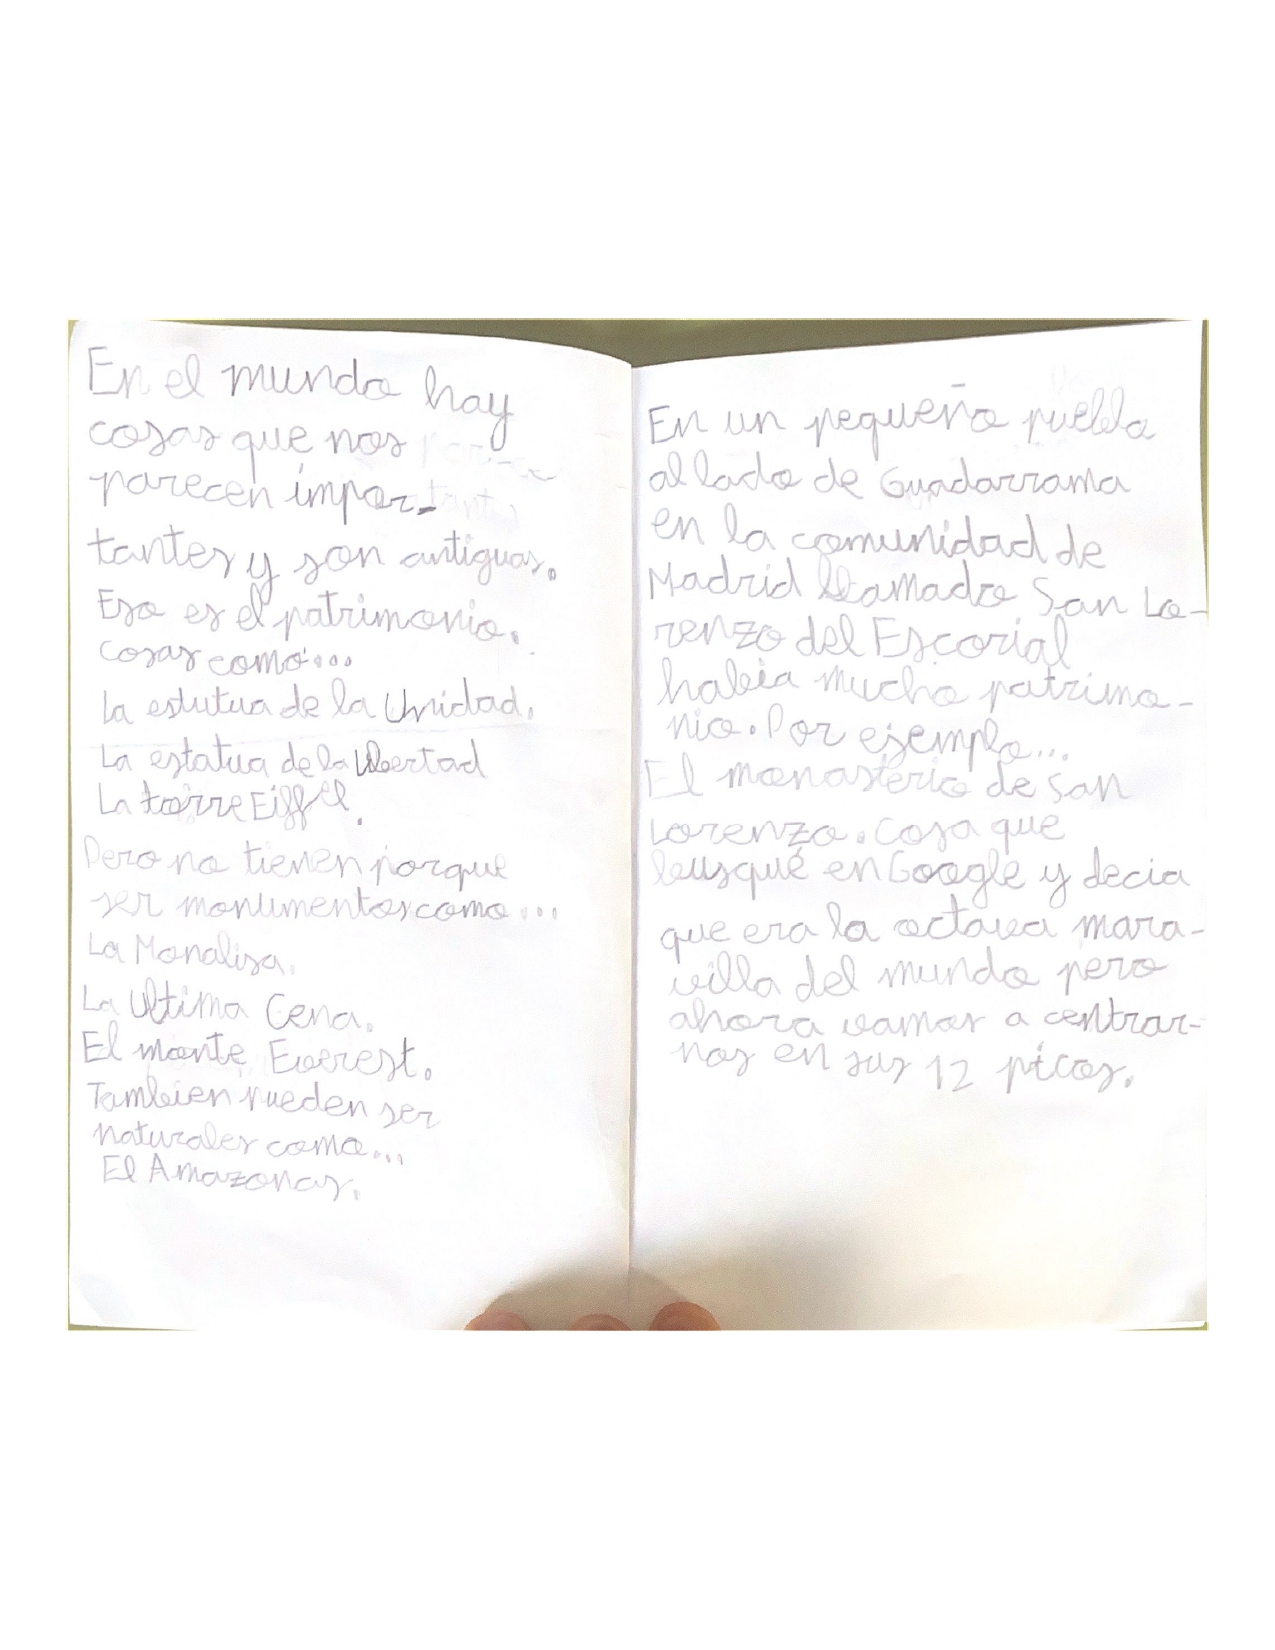 En el mundo hay
cosas que nos
parecen impor-
tantes y son antiguas.
Eso es el patrimonio.
Cosas como...
La estutua de la Unidad.
La estatua de la libertad
La torre Eiffel.
Pero no tienen porque
ser monumentos como...
La Monalisa.
La Ultima Cena.
El monte Everest.
Tambien pueden ser
naturales como...
El Amazonas.
En un pequeño pueblo
al lado de Guadarrama
en la comunidad de
Madrid llamado San Lo-
renzo del Escorial
habia mucho patrimo-
nio. Por ejemplo...
El monasterio de San
Lorenzo. Cosa que
busqué en Google y decia
que era la octava mara-
villa del mundo pero
ahora vamos a centrar-
nos en sus 12 picos.